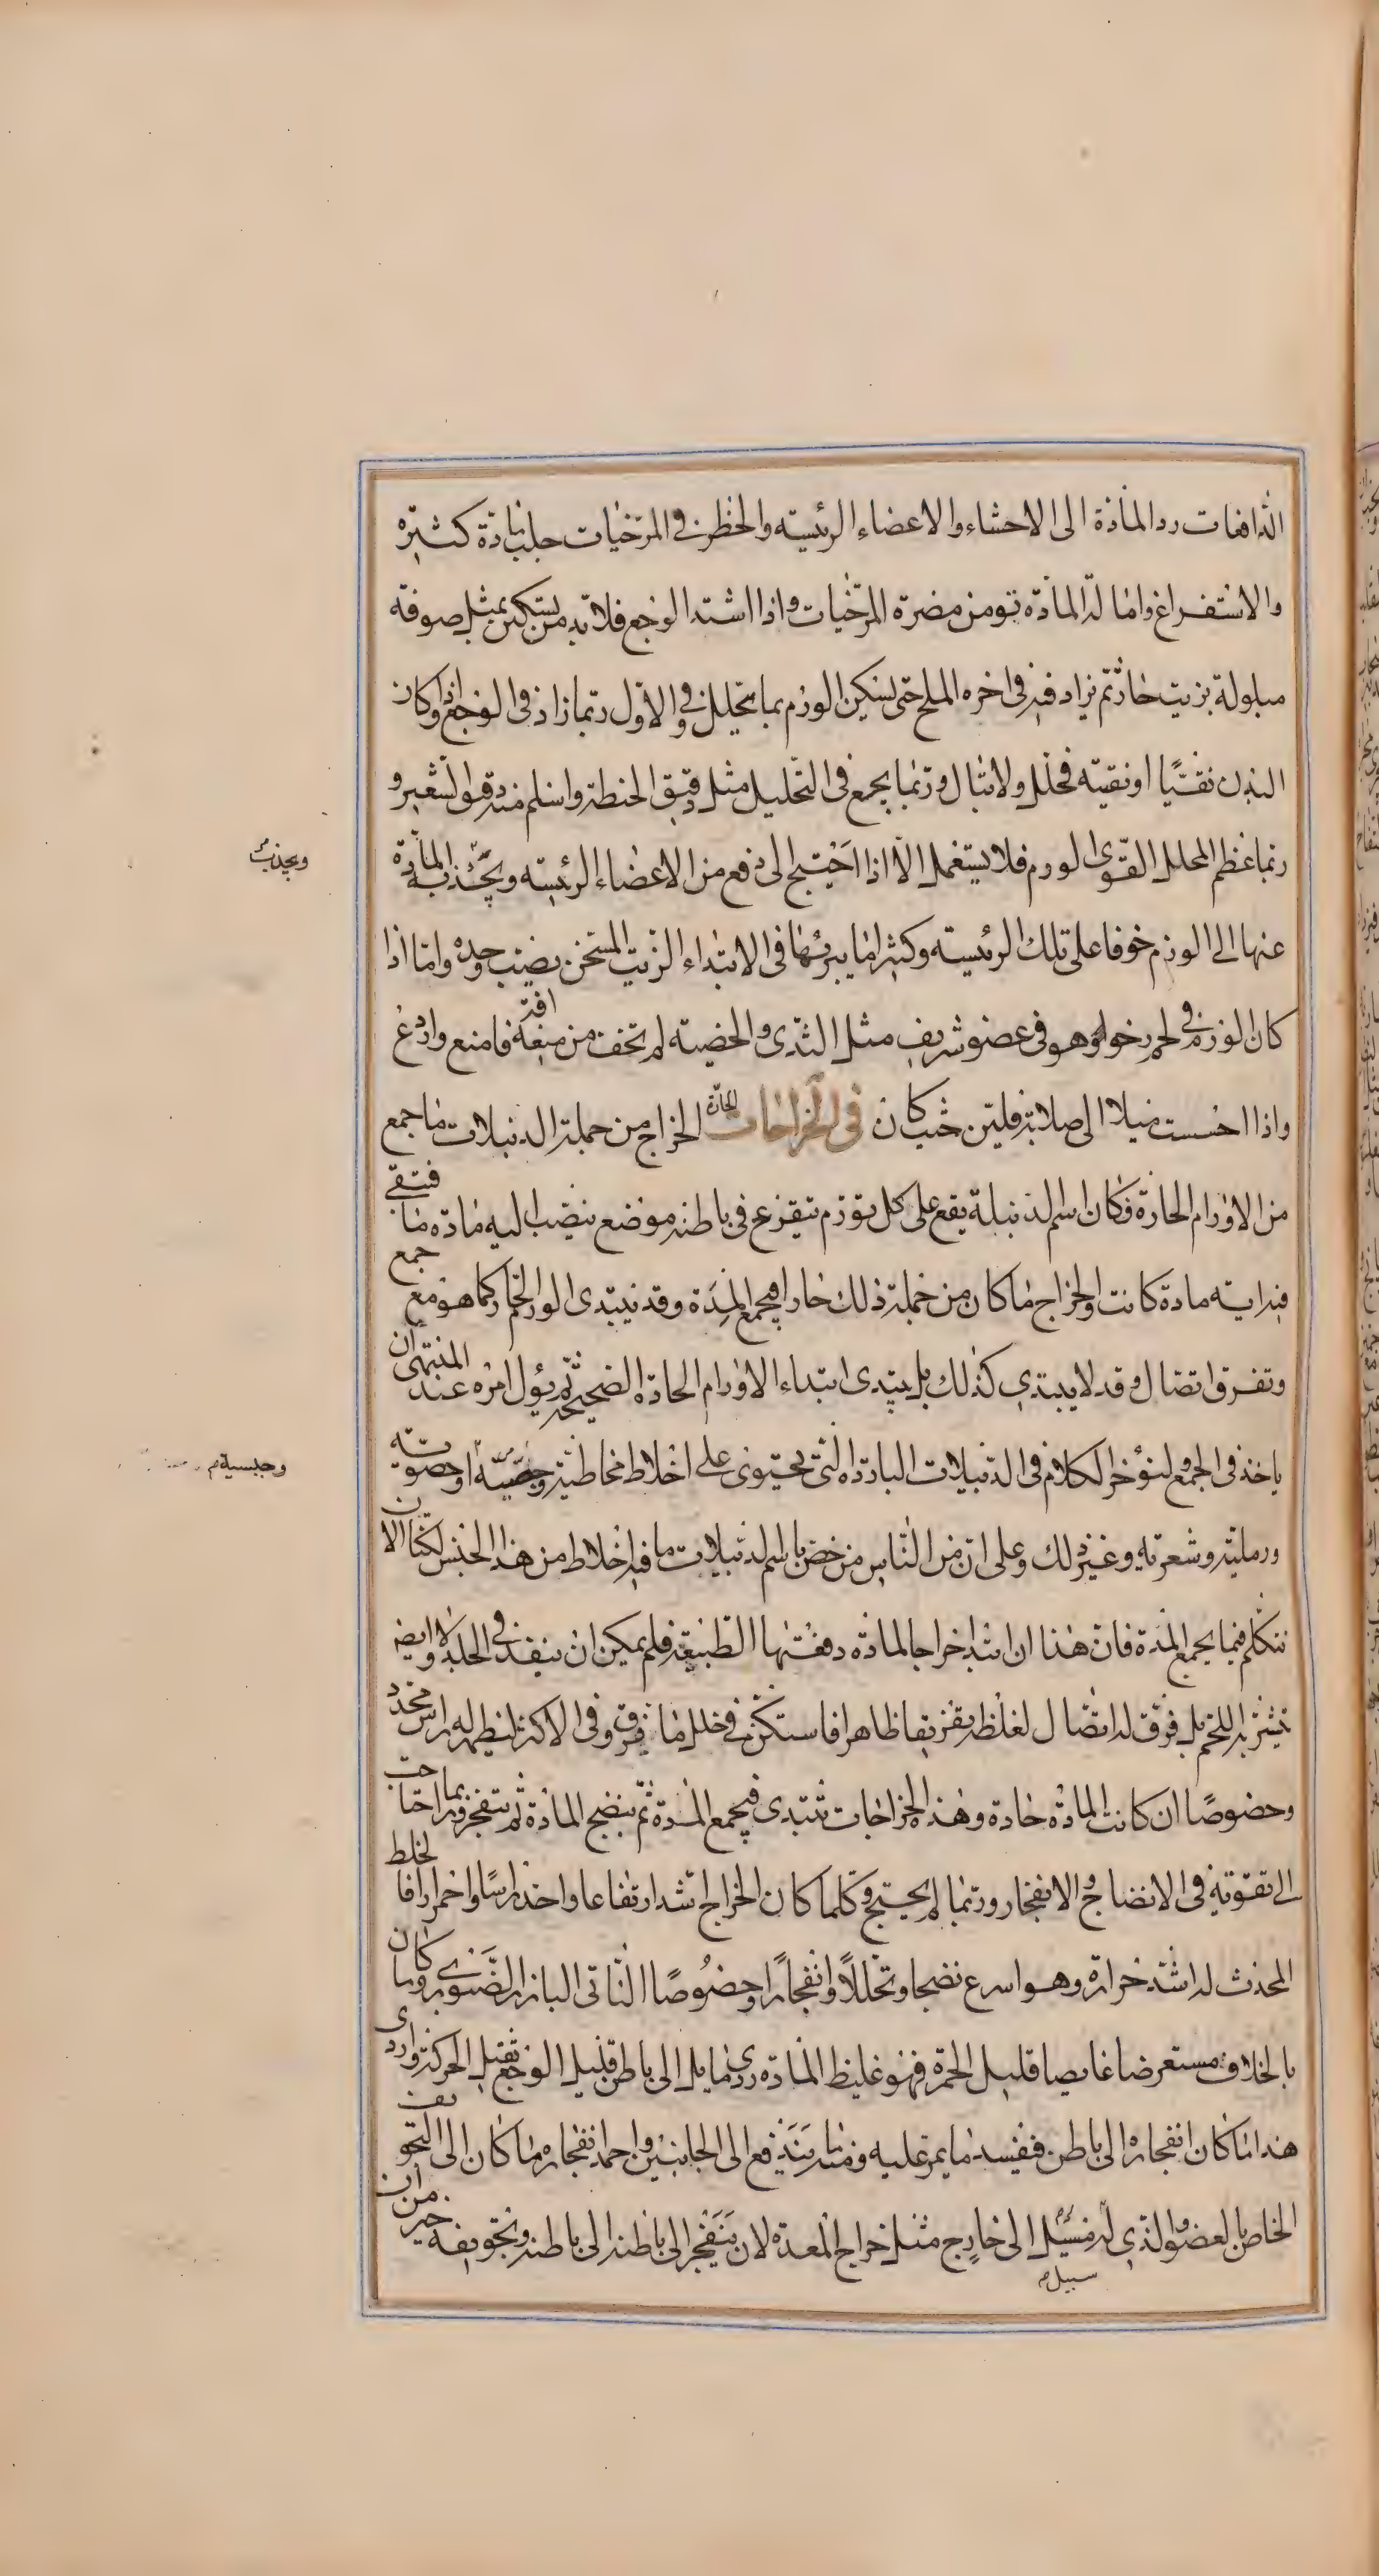 الدافعات رد المادة الى الاحشاء والاعضاء الرئيسته والخطر فى المرخيات جلب مادة كثيره
والاستفراغ وامالة المادة تومن مضرة المرخيات واذا اشتد الوجع فلابد من تسكين بمثل صوفة
مبلولة بزيت حار ثم يزاد فيه فى اخره الملح حتى يسكن الورم بما يتحلل وفى الاول ربما زاد فى الوجع واذا كان
البدن نقيا او نقيته فحلل ولا تبال وربما يجمع فى التحليل مثل دقيق الحنطة واسلم منه دقيق الشعير و
ربما عظم المحلل القوى الورم فلا يستعمل الا اذا احتيج الى دفع من الاعضاء الرئيسته وبجذب المادة
ويجذب
عنها الى الورم خوفا على تلك الرئيسته وكثيرا ما يبرئها فى الابتداء الزيت المسخن يصب وحده واما اذا
كان الورم فى لحم رخو وهو فى عضو شريف مثل الثدى والخصيه لم تخف من منعه افة فامنع واردع
واذا احسست ميلا الى صلابة فلين حيث كان فى الخراجات الحارة الخراج من جملة الدبيلات ما جمع
من الاورام الحارة فكان اسم الدبيلة يقع على كل تورم يتفرغ فى باطنه موضع ينصب اليه مادة ما فتبقى
فيه اية مادة كانت والخراج ما كان من جملة ذلك حارا فيجمع المدة وقد يبتدى الورم الحار كما هو مع جمع
وتفرق اتصال وقد لا يبتدى كذلك بل يبتدى ابتداء الاورام الحادة الصحيحة ثم يؤل امره عند المنتهى ان
ياخذ فى الجمع ولنؤخر الكلام فى الدبيلات الباردة التى يحتوى على اخلاط مخاطية وجصية او حصوية
وجبسية م
ورملية وشعرية وغير ذلك وعلى ان من الناس من خص باسم الدبيلات ما فيه اخلاط من هذا الجنس لكنا الان
نتكلم فيما يجمع المدة فان هذا ان ابتدا خراجا لمادة دفعتها الطبيعة فلم يمكن ان ينفذ فى الجلد ولا ايضا
يتشربه اللحم بل فرق له اتصال لغلظه تفريقا ظاهرا فاستكن فى خلل ما يفرق وفى الاكثر يظهر له راس محدد
وخصوصا ان كانت المادة حادة وهذه الخراجات تبتدى فيجمع المدة ثم ينضج المادة ثم يتفجر وربما احتاجت
الى تقوية فى الانضاج والانفجار وربما لم يحتج وكلما كان الخراج اشد ارتفاعا واحد راسا واحمرارا فالخلط
المحدث له اشد حرارة وهو اسرع نضجا وتحللا وانفجارا وخصوصا الناتى البارز الصنوبرى وما كان
بالخلاف مستعرضا غايصا قليل الحمرة فهو غليظ المادة ردى مايل الى باطن قليل الوجع ثقيل الحركة واردى
هذا ما كان انفجاره الى باطن فيفسد ما يمر عليه ومنه ما يندفع الى الجانبين واحمد انفجاره ما كان الى التجويف
الخاص بالعضو الذى له مسيل الى خارج مثل خراج المعدة لان يتفجر الى باطنه الى باطنه وتجويفه خير من ان
سبيل م